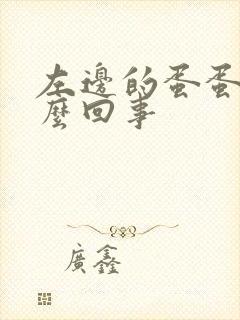 左邊的蛋蛋
麼回事
廣鑫